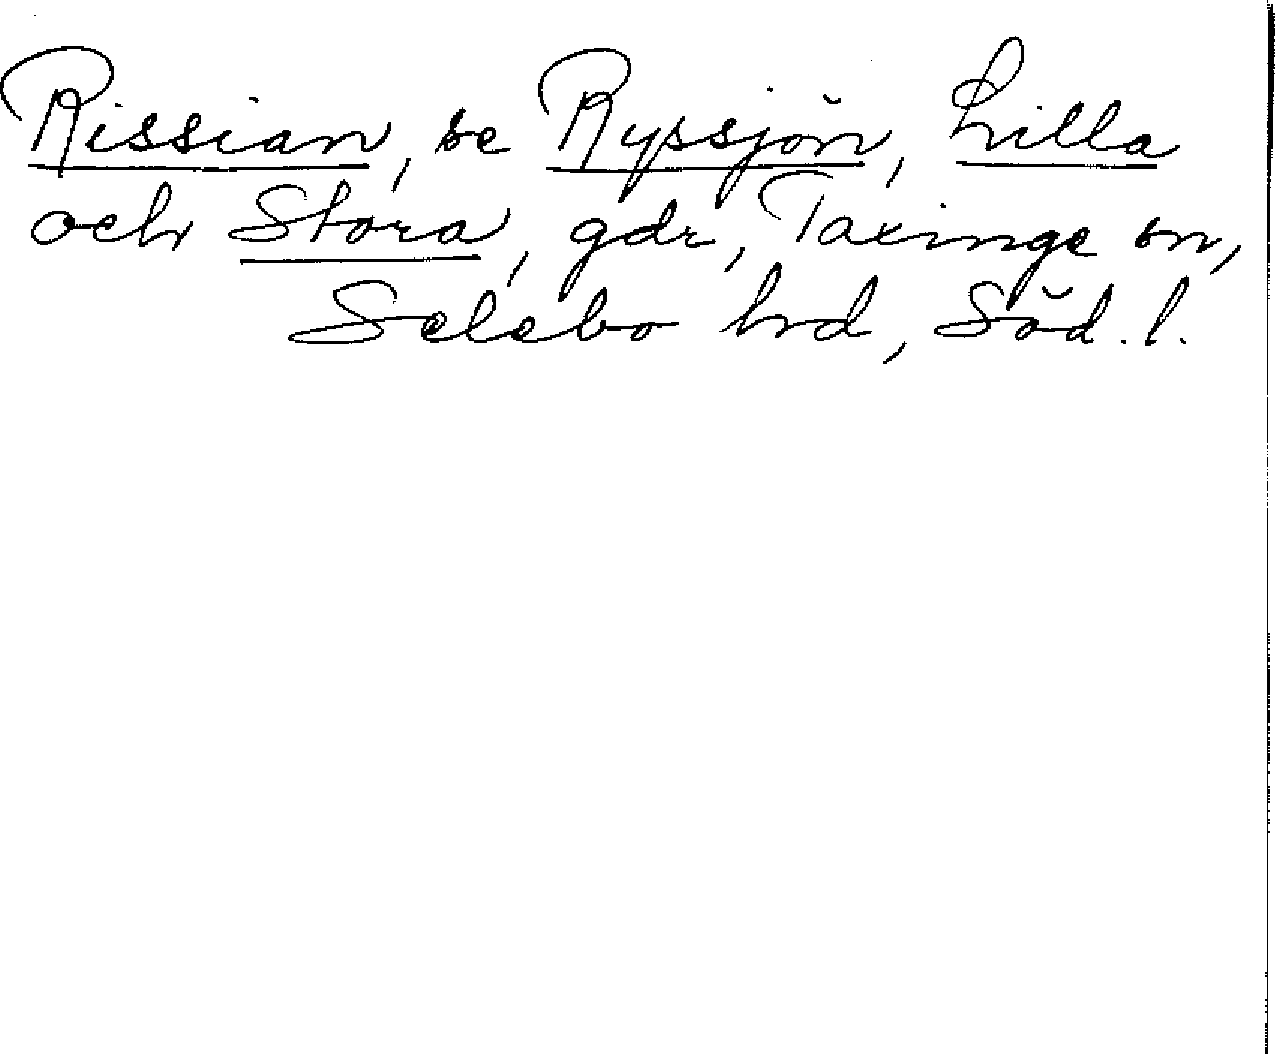 Rissian, se Ryssjön, Lilla
och Stora, gdr, Taxinge sn,
Selebo hrd, Söd. l.